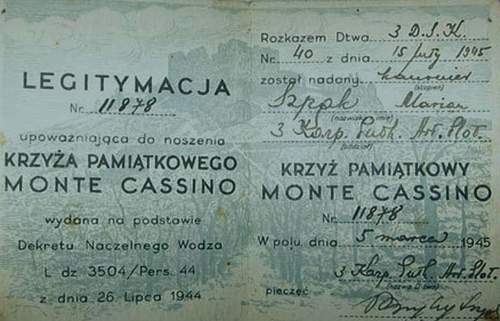 LEGITYMACJA
Nr. 11878
upoważniająca do noszenia
KRZYŻA PAMIĄTKOWEGO
MONTE CASSINO
wydana na podstawie
Dekretu Naczelnego Wodza
L dz 3504/Pers. 44
z dnia 26 Lipca 1944
Rozkazem Dtwa 3 D.S.K.
Nr. 40 z dnia 15 luty 1945
został nadany kanonier
(stopień)
Szpak Marian
(nazwisko i imię)
3 Karp. Lekk. Art. Plot.
(oddział)
KRZYŻ PAMIĄTKOWY
MONTE CASSINO
Nr. 11878
W polu, dnia 5 marca 1945
3 Karp. Lekk. Art. Plot.
pieczęć